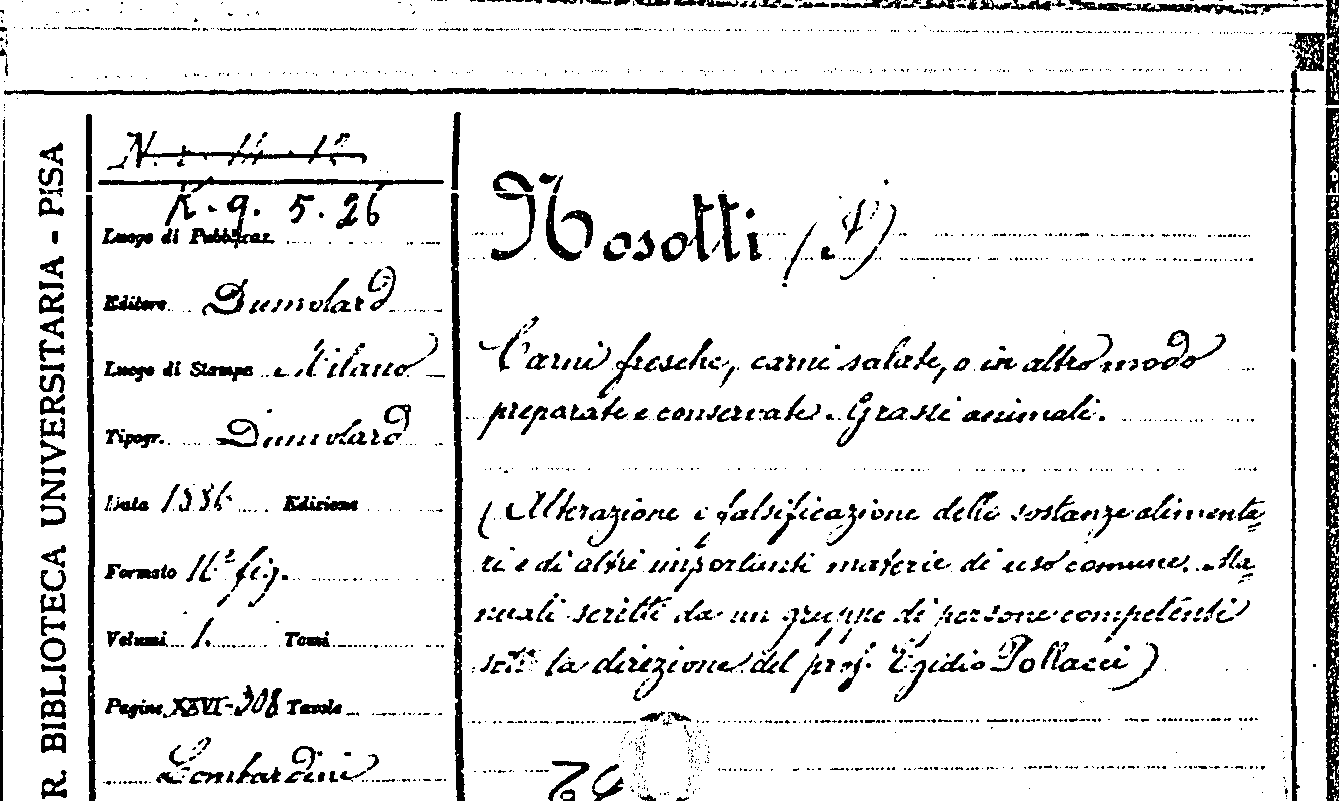 R. BIBLIOTECA UNIVERSITARIA - PISA
K. 9. 5. 26
Luogo di Pubblicaz.
Editore Dumolard
Luogo di Stampa Milano
Tipogr. Dumolard
Data 1886 Edizione
Formato 16° fig.
Volumi 1. Tomi
Pagine XXVI-308 Tavole
Lombardini
Nosotti (I)
Carni fresche, carni salate, o in altro modo
preparate e conservate. Grassi animali.
(Alterazione e falsificazione delle sostanze alimenta=
ri e di altri importanti materie di uso comune. Ma=
nuali scritti da un gruppo di persone competenti
sotto la direzione del prof. Egidio Pollacci)